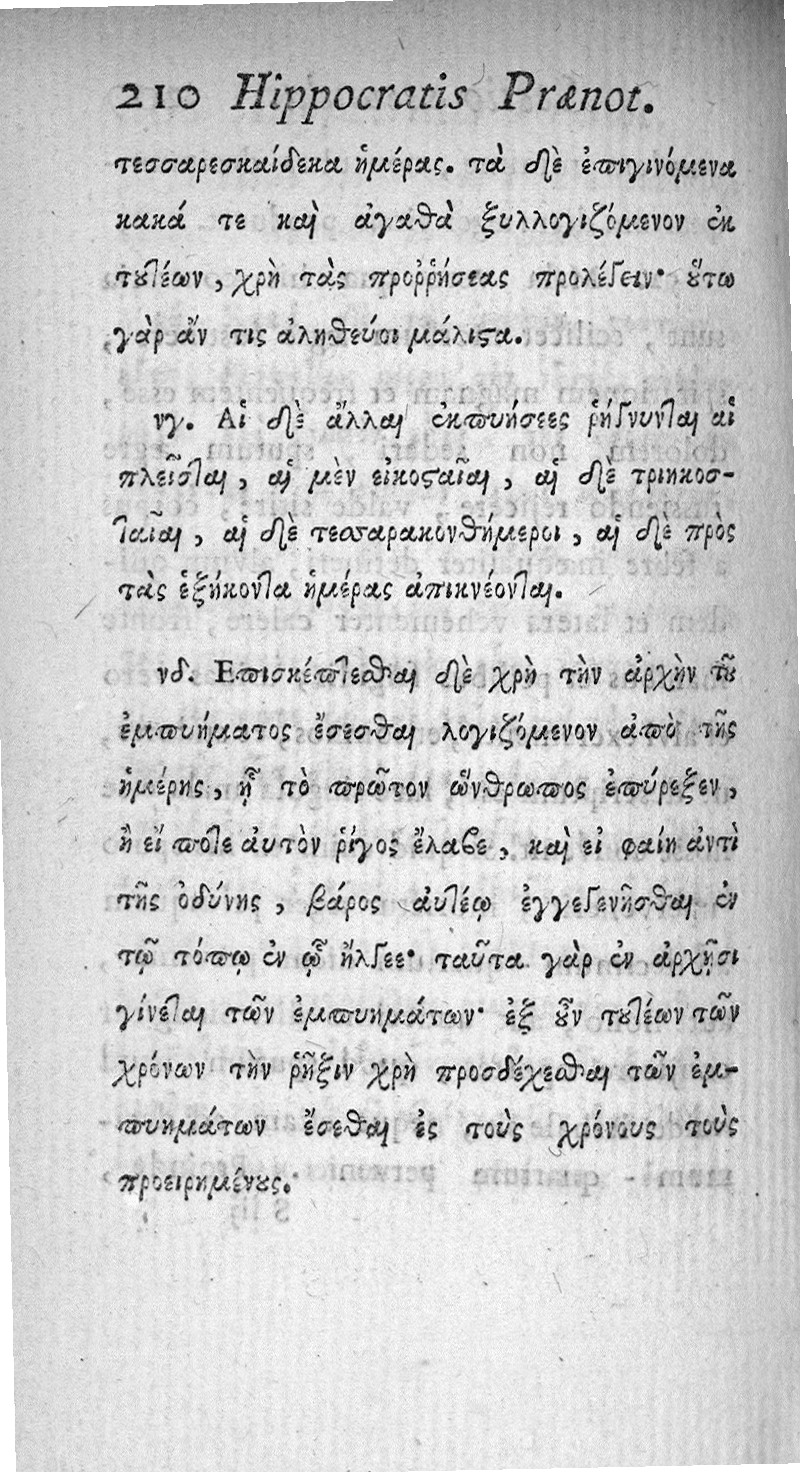 210 Hippocratis Prænot.
τεσσαρεσκαίδεκα ἡμέρας. τὰ δὲ ἐπιγινόμενα
κακά τε καὶ ἀγαθὰ ξυλλογιζόμενον ἐκ
τȣτέων, χρὴ τὰς προῤῥήσεας προλέγειν· ȣ̔́τω
γὰρ ἄν τις ἀληθεύοι μάλιϛα.
νγ. Αἱ δὲ ἄλλαι ἐκπυήσεες ῥήγνυνται αἱ
πλεῖσται, αἱ μὲν εἰκοϛαῖαι, αἱ δὲ τριηκοσ-
ταῖαι, αἱ δὲ τεσσαρακονθήμεροι, αἱ δὲ πρὸς
τὰς ἑξήκοντα ἡμέρας ἀπικνέονται.
νδ. Επισκέπτεσθαι δὲ χρὴ τὴν ἀρχὴν τȣ͂
ἐμπυήματος ἔσεσθαι λογιζόμενον ἀπὸ τῆς
ἡμέρης, ᾗ τὸ πρῶτον ὥνθρωπος ἐπύρεξεν,
ἢ εἴ ποτε αὐτὸν ῥίγος ἔλαβε, καὶ εἰ φαίη ἀντὶ
τῆς ὀδύνης, βάρος αὐτέῳ ἐγγεγενῆσθαι ἐν
τῷ τόπῳ ἐν ᾧ ἤλγεε· ταῦτα γὰρ ἐν ἀρχῇσι
γίνεται τῶν ἐμπυημάτων· ἐξ ȣ̓͂ν τȣτέων τῶν
χρόνων τὴν ῥῆξιν χρὴ προσδέχεσθαι τῶν ἐμ-
πυημάτων ἔσεσθαι ἐς τοὺς χρόνους τοὺς
προειρημένȣς.